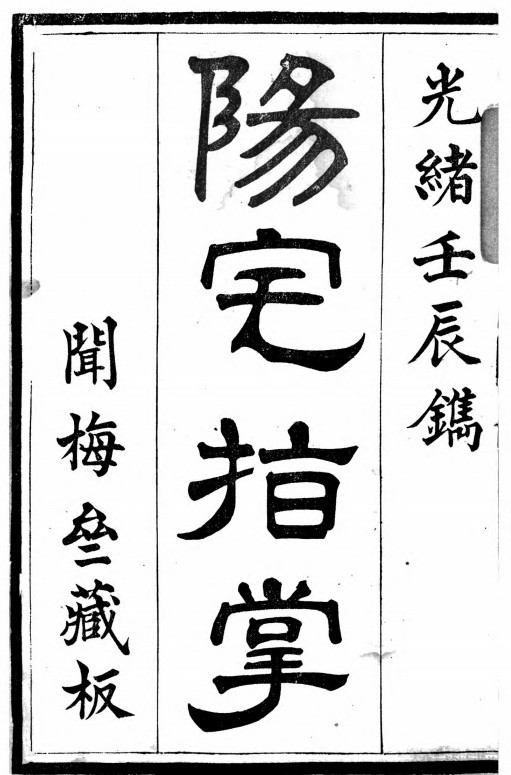 光緒壬辰鐫
陽宅指掌
聞梅亝藏板